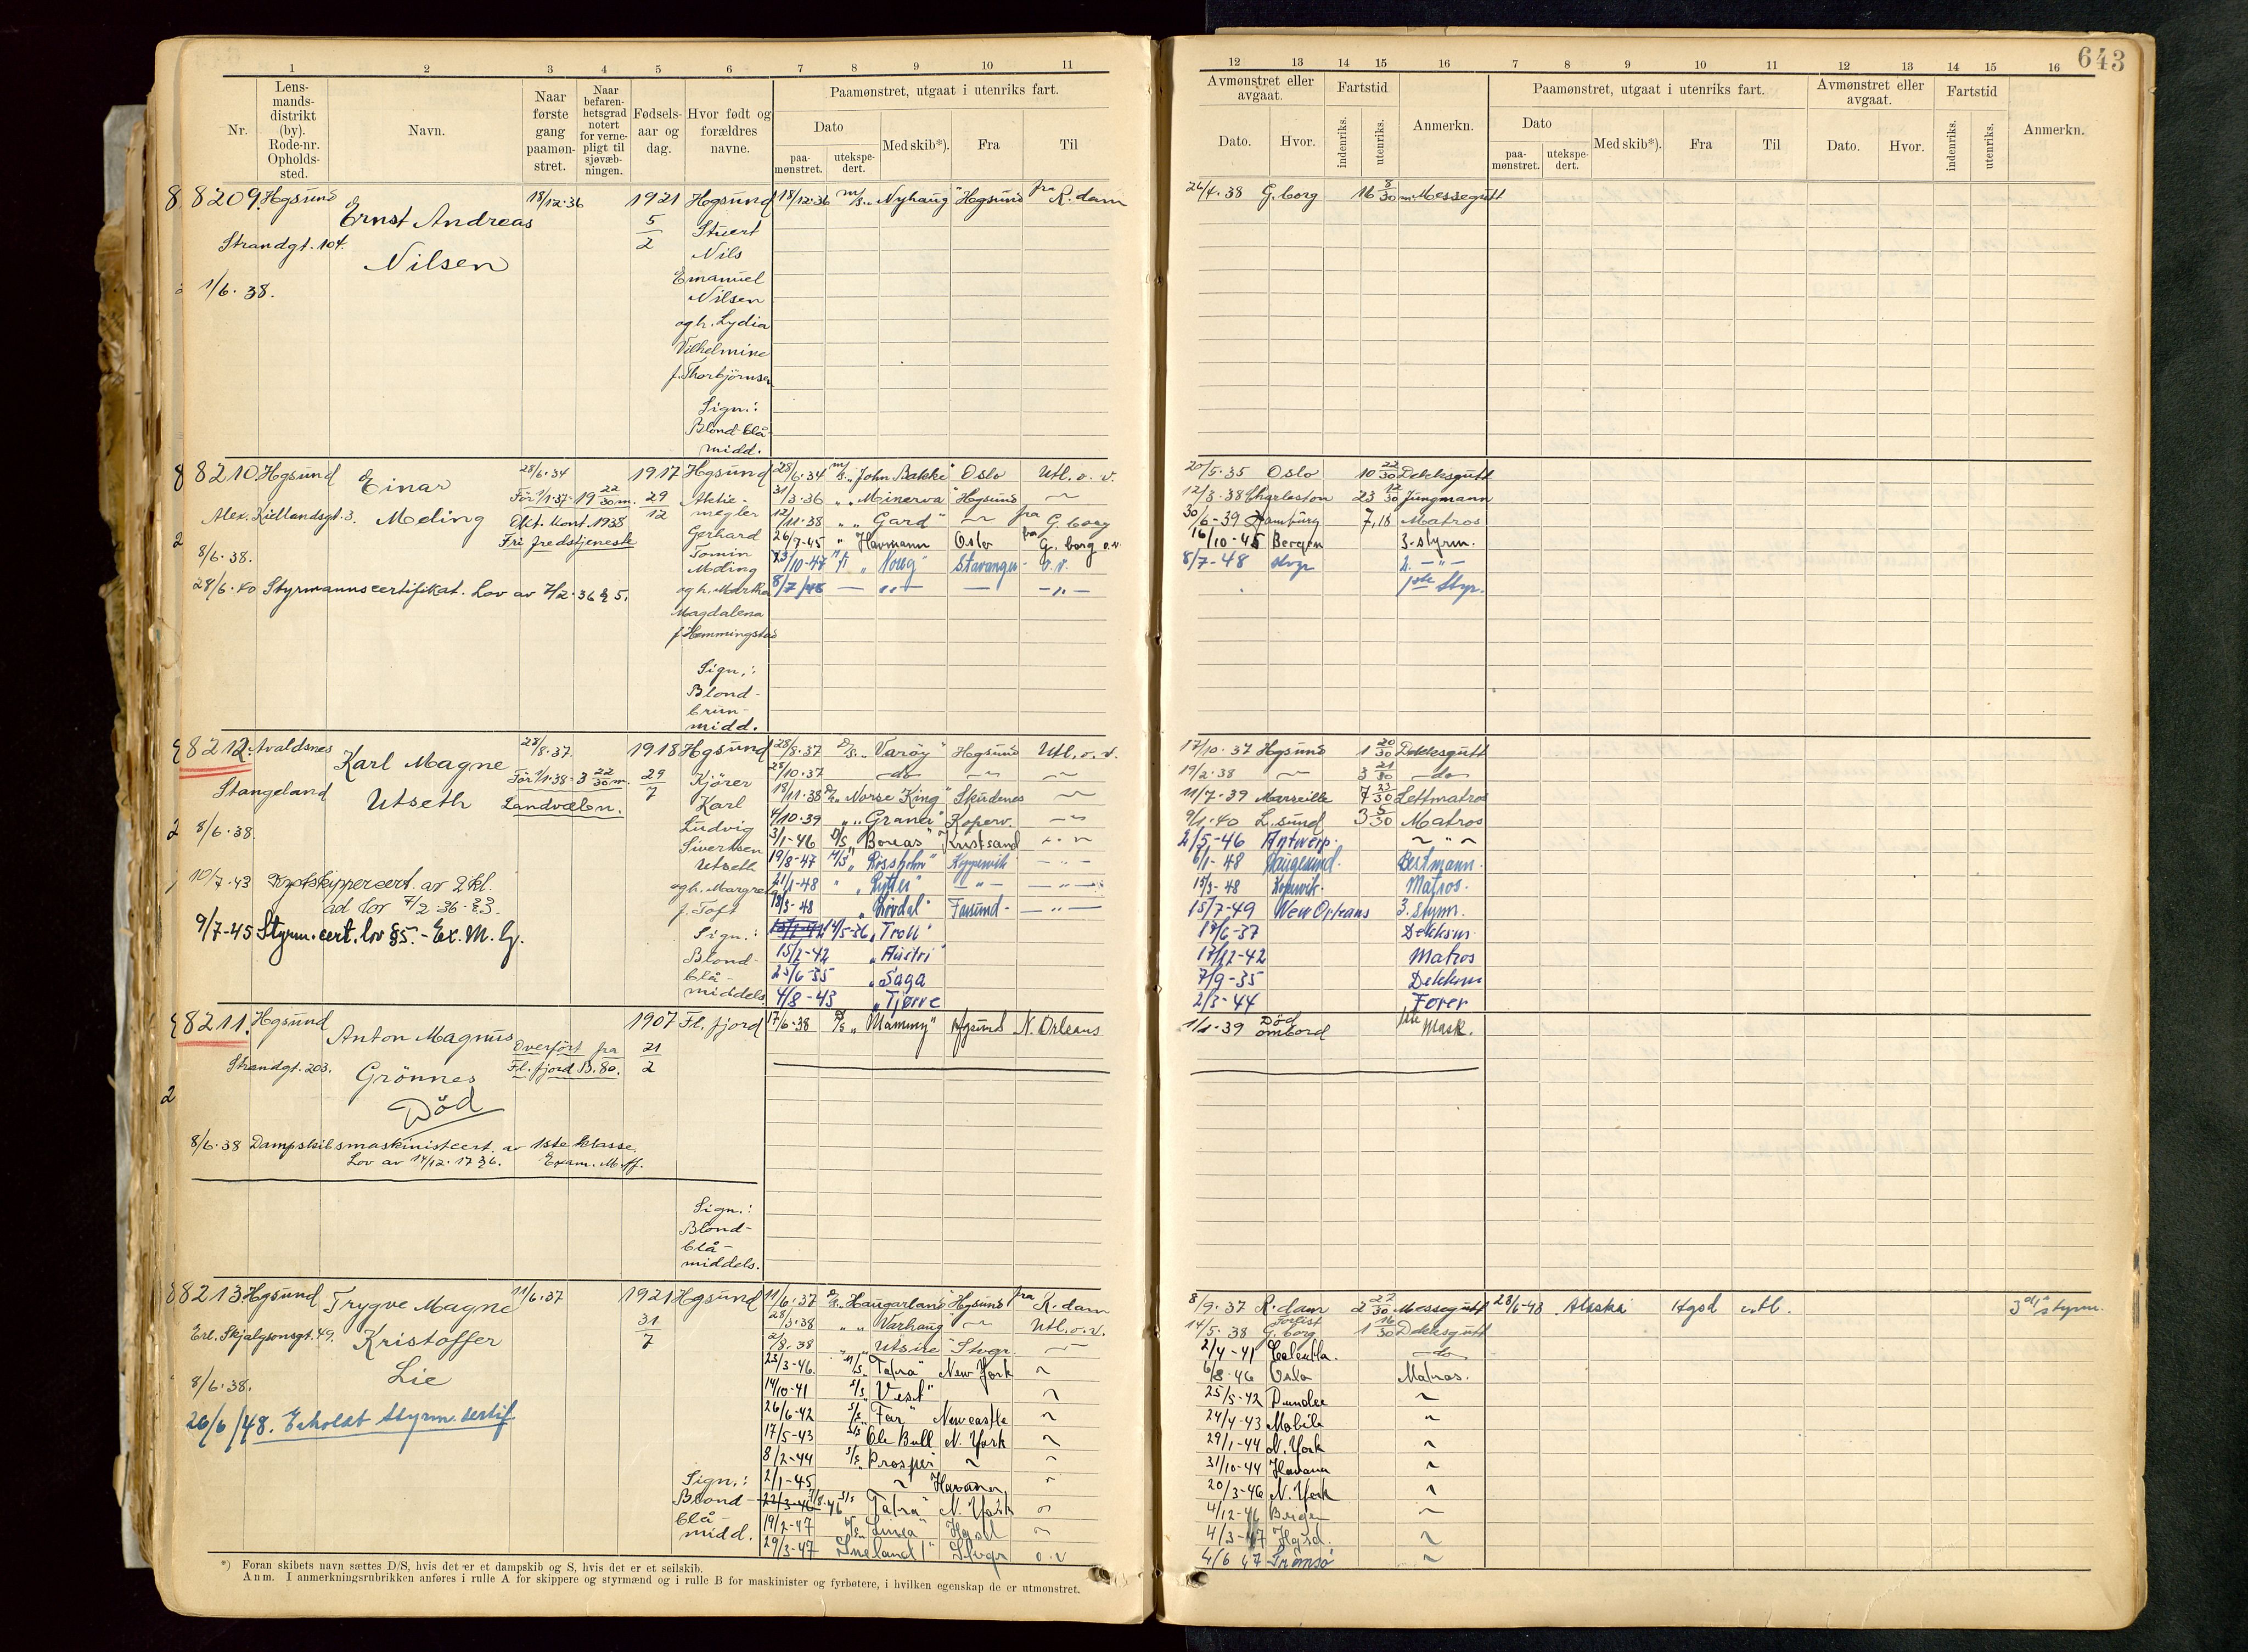 643
1 2 3 4 5 6 7 8 9 10 11 12 13 14 15 16 7 8 9 10 11 12 13 14 15 16
Nr.
Lens-
mands-
distrikt
(by).
Rode-nr.
Opholds-
sted.
Navn.
Naar
første
gang
paamøn-
stret.
Naar
befaren-
hetsgrad
notert
for verne-
pligt til
sjøvæb-
ningen.
Fødsels-
aar og
dag.
Hvor født og
forældres
navne.
Paamønstret, utgaat i utenriks fart.
Dato
paa-
mønstret.
utekspe-
dert.
Med skib*).
Fra
Til
Avmønstret eller
avgaat.
Dato.
Hvor.
Fartstid
indenriks.
utenriks.
Anmerkn.
Paamønstret, utgaat i utenriks fart.
Dato
paa-
mønstret.
utekspe-
dert.
Med skib*).
Fra
Til
Avmønstret eller
avgaat.
Dato.
Hvor.
Fartstid
indenriks.
utenriks.
Anmerkn.
8209. Hgsund
Strandgt. 104.
1/6. 38.
Ernst Andreas
Nilsen
18/12.36
1921
5
2
Hogsund
Stuert
Nils
Emanuel
Nilsen
og h. Lydia
Vilhelmine
f. Thorbjörnsen
Sign.:
Blond-blå-
midd.
18/12.36 m/s. „Nyhaug" Hogsund fra R.dam
26/4.38 G.borg 16 8/30 m. Messegutt
8210. Hgsund
Alex. Kiellandsgt. 3.
8/6. 38.
28/6.40 Styrmannscertifikat. Lov av 7/2.36 § 5.
Einar
Meling
28/6.34
För 1/1.37= 19 22/30 m.
Okt. Kont. 1938
Fri fredstjeneste
1917
29
12
Hgsund
Aktie-
megler
Gerhard
Tomin
Meling
og h. Martha
Magdalena
f. Hemmingstad
Sign.:
Blond-
brun-
midd.
28/6.34 m/s. „John Bakke" Oslo Utl. o. v.
31/3.36 „ „Minerva" Hgsund
12/11.38 „ „Gard" fra G.borg
26/7-45 „ Havmann Oslo fra G.borg o.v.
23/10-47 „ Stavanger- o.v.
8/7/48 — „ — — — „ —
20/5.35 Oslo 10 22/30 Dekksgutt
12/3.38 Charleston 23 12/30 Jungmann
30/6-39 Hamburg 7,18 Matros
16/10-45 Bergen 3. styrm.
8/7-48 Stvgr 2. — „ —
1ste Styr.
8212. Avaldsnes
Stangeland
8/6.38.
10/7.43 Kystskippercert. av 2 kl.
ad lov 7/2.36. § 3.
9/7-45 Styrm. cert. lov § 5. - Ex. M. G.
Karl Magne
Utseth
28/8.37
För 1/1.38= 3 22/30 m.
Landvæbn.
1918
29
7
Hgsund
Kjörer
Karl
Ludvig
Sivertsen
Utseth
og h. Margrete
f. Toft
Sign.:
Blond-
blå-
middels.
28/8.37 D/S. „Varöy" Hogsund Utl. o. v.
28/10.37 — do —
18/11.38 D/S. „Norse King" Skudenes
4/10.39 „ „Grana" Koperv.
3/1-46 D/S „Boreas" Kristsand
19/8-47 M/S „Rossholm" Koppervik — „ —
21/1-48 „ „Rytter" — „ — — „ —
18/3-48 „Livdal" Farsund - — „ —
14/5-36 „Troll"
15/2-42 „Austri"
25/6-35 „Saga
4/8-43 „Tjörve
17/10.37 Hgsund 1 20/30 Dekksgutt
19/2.38 3 21/30 — do —
11/7.39 Marseille 7 23/30 Lettmatros
9/1.40 L.sund 3 5/30 Matros
2/5-46 Antwerp.
6/1-48 Haugesund. Bestmann.
15/3-48 Kopervik. Matros.
15/7-49 New Orleans 3. Styrm.
17/6-37 Dekksm.
17/12-42 Matros
7/9-35 Dekksm
2/3-44 Förer
8211. Hgsund
Strandgt. 203.
Anton Magnus
Grönnes
Död
Overfört fra
Fl. fjord B. 80.
1907
21
2
Fl. fjord
8/6.38 Dampskibsmaskinistcert. av 1ste klasse.
Lov av 14/12.17 § 6. Exam. M. ff.
Sign.:
Blond-
blå-
middels.
17/6.38 D/S „Mammy" Hgsund N. Orleans
1/1.39 Död ombord 1ste Mask.
8213 Hgsund
Erl. Skjalgsonsgt. 49.
8/6.38.
26/6/48. Erholdt styrm. sertif.
Trygve Magne
Kristoffer
Lie
11/6.37
1921
31
7
Hgsund
Sign.:
Blond-
blå-
midd.
11/6.37 D/S. „Haugarland" Hgsund fra R.dam
28/3.38 „ „Varhaug" Utl. o. v.
2/8.38 „ „Utsire" Stvgr.
23/3-46. M/S „Tatra" New York
14/10-41 S/S „Vest"
26/6-42 S/S. „Far" Newcastle
17/5-43 S/S Ole Bull N. York
8/2-44 S/S. Prosper
2/1-45 Havana
22/3-46 7/8-46 S/S „Tatra" N. York
19/2-47 „Linea" Hgsd
29/3-47 Sneland I" Stvgr o. v
8/9.37 R.dam 2 22/30 Messegutt
14/5.38 Forlist G.borg 1 16/30 Dekksgutt
2/4-41 Calcutta. — do —
6/8-46 Oslo Matros.
25/5-42 Dundee
24/4-43 Mobile
29/1-44 N. York
31/10-44 Havana
20/3-46 N. York
4/12-46 Bergen
4/3-47 Hgsd.
4/6 47 Tromsö
28/6-48 Alaska Hgsd utl. 3die styrm.
*) Foran skibets navn sættes D/S, hvis det er et dampskib og S, hvis det er et seilskib.
Anm. I anmerkningsrubrikken anføres i rulle A for skippere og styrmænd og i rulle B for maskinister og fyrbøtere, i hvilken egenskap de er utmønstret.